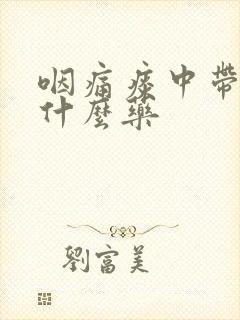 咽痛痰中帶
什麼藥
劉富美